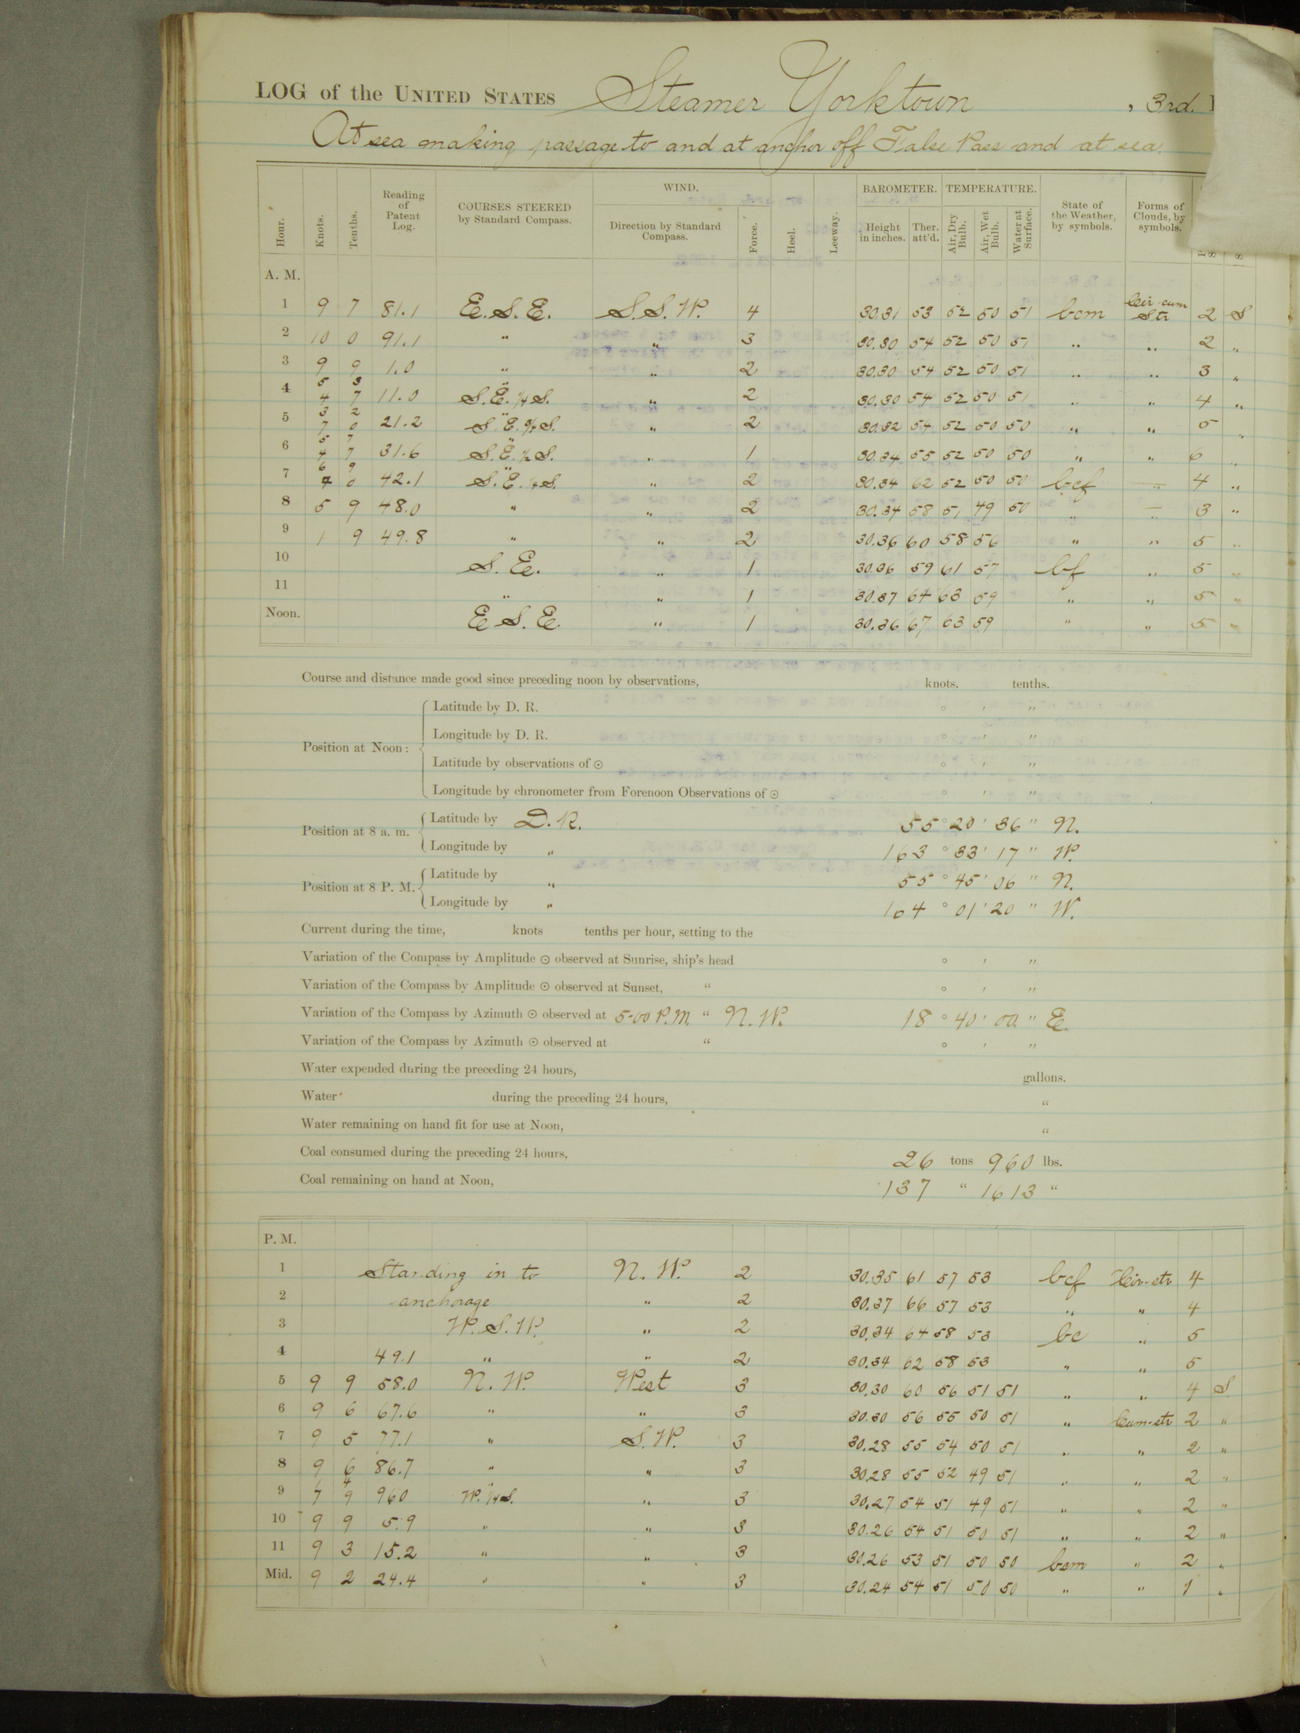 LOG of the UNITED STATES Steamer Yorktown, 3rd.
At sea making passage to and at anchor off False Pass and at sea.
Hour. Knots. Tenths. Reading of Patent Log. COURSES STEERED by Standard Compass. WIND. Direction by Standard Compass. Force. Heel. Leeway. BAROMETER. Height in inches. Ther. att'd. TEMPERATURE. Air, Dry Bulb. Air, Wet Bulb. Water at Surface. State of the Weather, by symbols. Forms of Clouds, by symbols.
A. M.
1 9 7 81.1 E.S.E. S.S.W. 4 30.31 53 52 50 51 bcm Cir-cum Str 2 S
2 10 0 91.1 " " 3 30.30 54 52 50 51 " " 2 "
3 9 9 1.0 " " 2 30.30 54 52 50 51 " " 3 "
4 5 3 4 7 11.0 " S.E. ¼ S. " 2 30.30 54 52 50 51 " " 4 "
5 3 2 7 0 21.2 " S.E. ¾ S. " 2 30.32 54 52 50 50 " " 5 "
6 5 7 4 7 31.6 " S.E. ½ S. " 1 30.34 55 52 50 50 " " 6 "
7 6 9 4 0 42.1 " S.E. ¼ S. " 2 30.34 62 52 50 50 bcf " 4 "
8 5 9 48.0 " " 2 30.34 58 51 49 50 " " 3 "
9 1 9 49.8 " " 2 30.36 60 58 56 " " 5 "
10 S.E. " 1 30.36 59 61 57 bf " 5 "
11 " " 1 30.37 64 63 59 " " 5 "
Noon. E.S.E. " 1 30.36 67 63 59 " " 5 "
Course and distance made good since preceding noon by observations, knots. tenths.
Position at Noon: Latitude by D. R. ° ' "
Longitude by D. R. ° ' "
Latitude by observations of ☉ ° ' "
Longitude by chronometer from Forenoon Observations of ☉ ° ' "
Position at 8 a. m. Latitude by D.R. 55° 20' 36" N.
Longitude by " 163° 33' 17" W.
Position at 8 P. M. Latitude by " 55° 45' 06" N.
Longitude by " 164° 01' 20" W.
Current during the time, knots tenths per hour, setting to the
Variation of the Compass by Amplitude ☉ observed at Sunrise, ship's head ° ' "
Variation of the Compass by Amplitude ☉ observed at Sunset, " ° ' "
Variation of the Compass by Azimuth ☉ observed at 5-00 P.M. " N.W. 18° 40' 00" E.
Variation of the Compass by Azimuth ☉ observed at " ° ' "
Water expended during the preceding 24 hours, gallons.
Water during the preceding 24 hours, "
Water remaining on hand fit for use at Noon, "
Coal consumed during the preceding 24 hours, 26 tons 960 lbs.
Coal remaining on hand at Noon, 137 " 1613 "
P. M.
1 Standing in to N.W. 2 30.35 61 57 53 bcf Cir-str 4
2 anchorage " 2 30.37 66 57 53 " " 4
3 W.S.W. " 2 30.34 64 58 53 bc " 5
4 49.1 " " 2 30.34 62 58 53 " " 5
5 9 9 58.0 N.W. West 3 30.30 60 56 51 51 " " 4 S
6 9 6 67.6 " " 3 30.30 56 55 50 51 " Cum-str 2 "
7 9 5 77.1 " S.W. 3 30.28 55 54 50 51 " " 2 "
8 9 6 86.7 " " 3 30.28 55 52 49 51 " " 2 "
9 1 4 7 9 96.0 " W. ¼ S. " 3 30.27 54 51 49 51 " " 2 "
10 9 9 5.9 " " 3 30.26 54 51 50 51 " " 2 "
11 9 3 15.2 " " 3 30.26 53 51 50 50 bcm " 2 "
Mid. 9 2 24.4 " " 3 30.24 54 51 50 50 " " 1 "